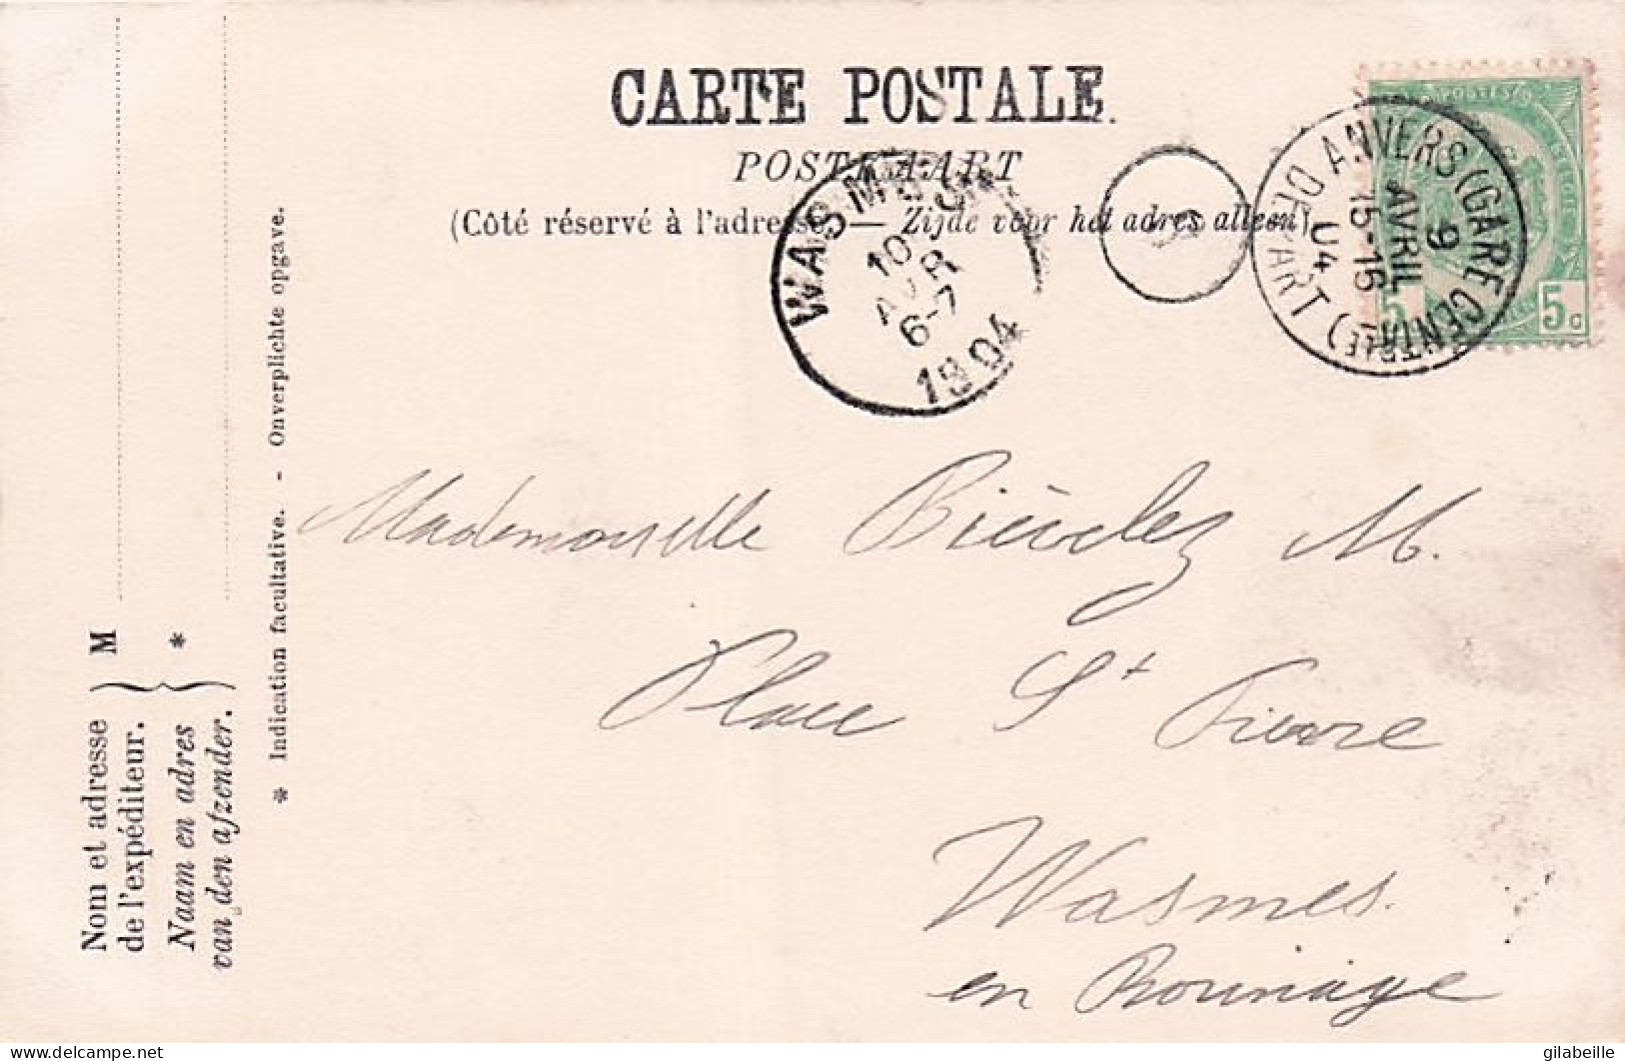 CARTE POSTALE.
POSTKAART
(Côté réservé à l'adresse. — Zijde voor het adres alleen).
POSTES
5 c
5
ANVERS (GARE CENTRALE)
DÉPART
9
AVRIL
15-16
04
WASMES
10
AVR
6-7
1904
Mademoiselle M.
Place St Pierre
Wasmes.
en
M
*
Nom et adresse
de l'expéditeur.
Naam en adres
van den afzender.
* Indication facultative. - Onverplichte opgave.
delcampe.net
gilabeille